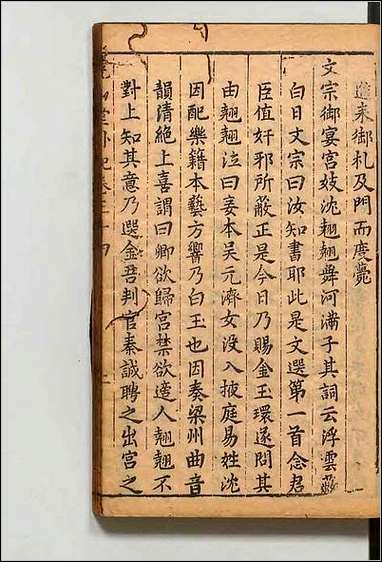 蓬萊御札及門而度薨
文宗御宴宮妓沈翹翹舞河滿子其詞云浮雲蔽
白日文宗曰汝知書耶此是文選第一首念君
臣值奸邪所蔽正是今日乃賜金玉環遂問其
由翹翹泣曰妾本吴元濟女没入掖庭易姓沈
因配樂籍本藝方響乃白玉也因奏梁州曲音
韻清絶上喜謂曰卿欲歸宮禁欲適人翹翹不
對上知其意乃選金吾判官秦誠聘之出宮之
堯山堂外紀卷三十四